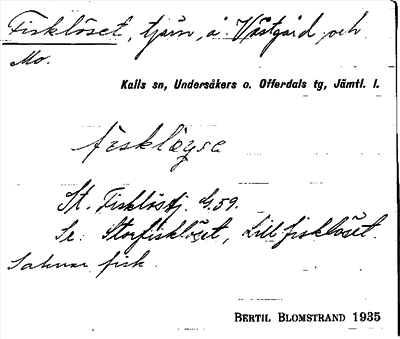 Fisklöset, tjärn, å Västgård och
Mo.
Kalls sn, Undersåkers o. Offerdals tg, Jämtl. l.
feskløyse
St. Fisklöstj. G.59.
Se: Storfisklöset, Lillfisklöset.
Saknar fisk.
BERTIL BLOMSTRAND 1935